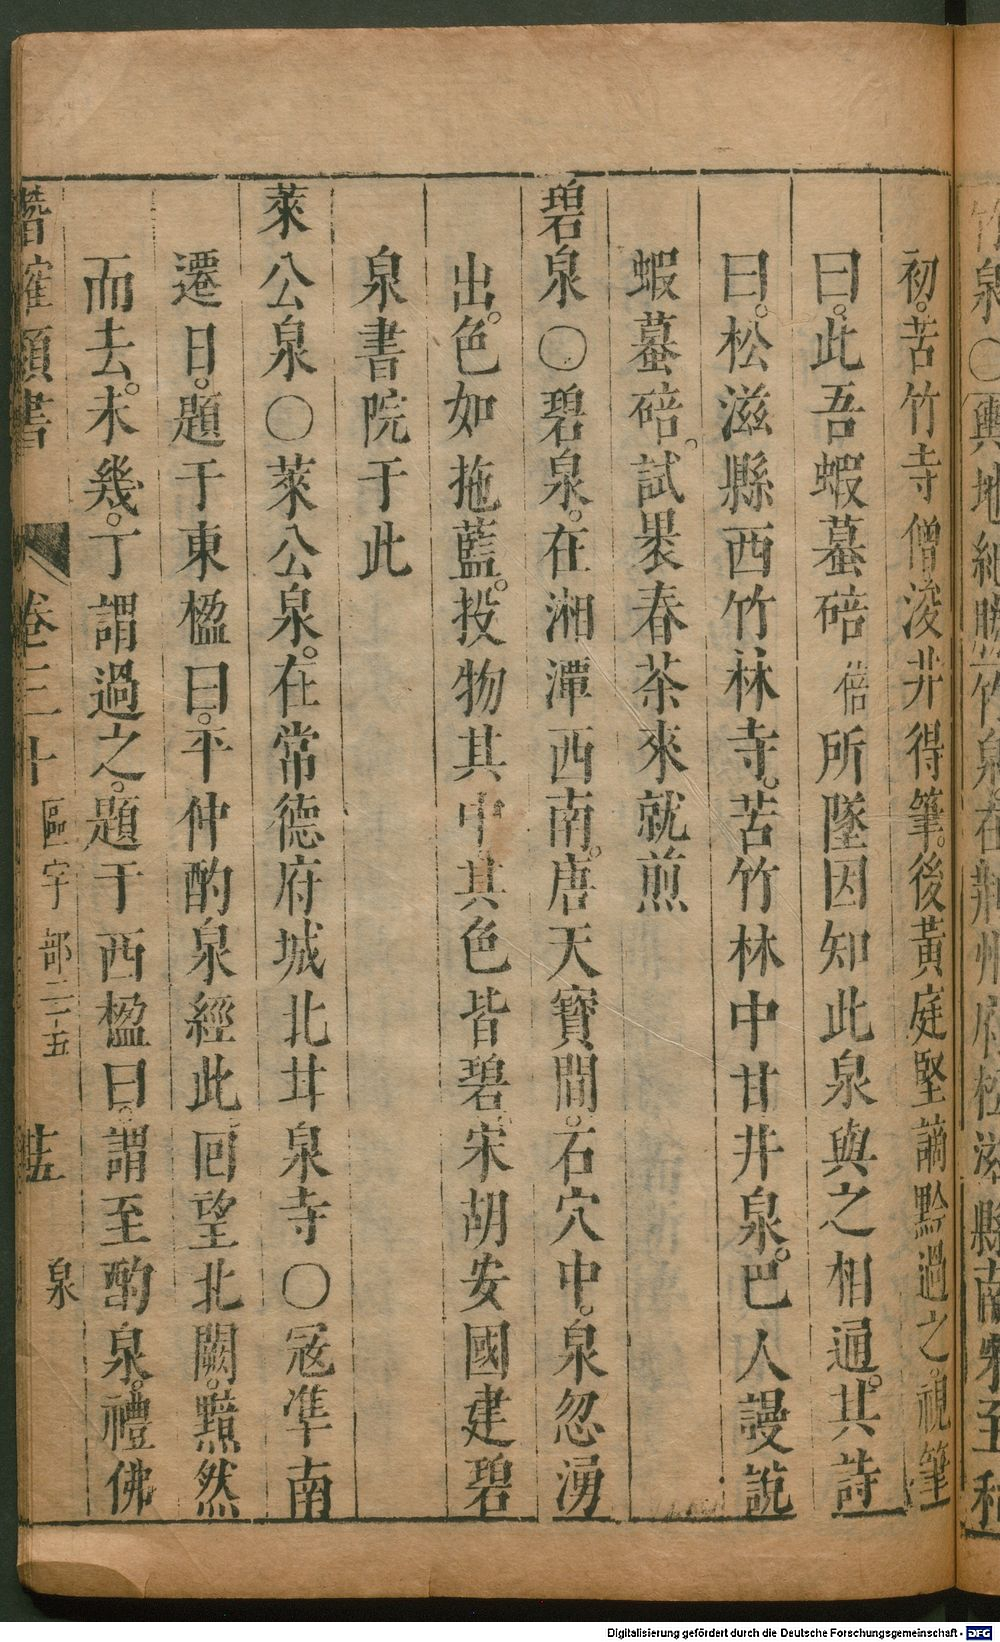 竹泉○輿地紀勝竹泉在荊州府松滋縣南宋至和
初。苦竹寺僧浚井得筆。後黃庭堅謫黔過之。視筆
曰。此吾蝦蟇碚倍所墜因知此泉與之相通。其詩
曰。松滋縣西竹林寺。苦竹林中甘井泉。巴人謾說
蝦蟇碚。試褁春茶來就煎
碧泉○碧泉。在湘潭西南。唐天寶間。石穴中。泉忽湧
出。色如拖藍。投物其中其色皆碧宋胡安國建碧
泉書院于此
萊公泉○萊公泉。在常德府城北甘泉寺○冦準南
遷日。題于東楹曰。平仲酌泉經此回望北闕。黯然
而去。未幾。丁謂過之。題于西楹曰。謂至酌泉。禮佛
潛確類書 卷三十 區宇部二十五 泉
Digitalisierung gefördert durch die Deutsche Forschungsgemeinschaft - DFG